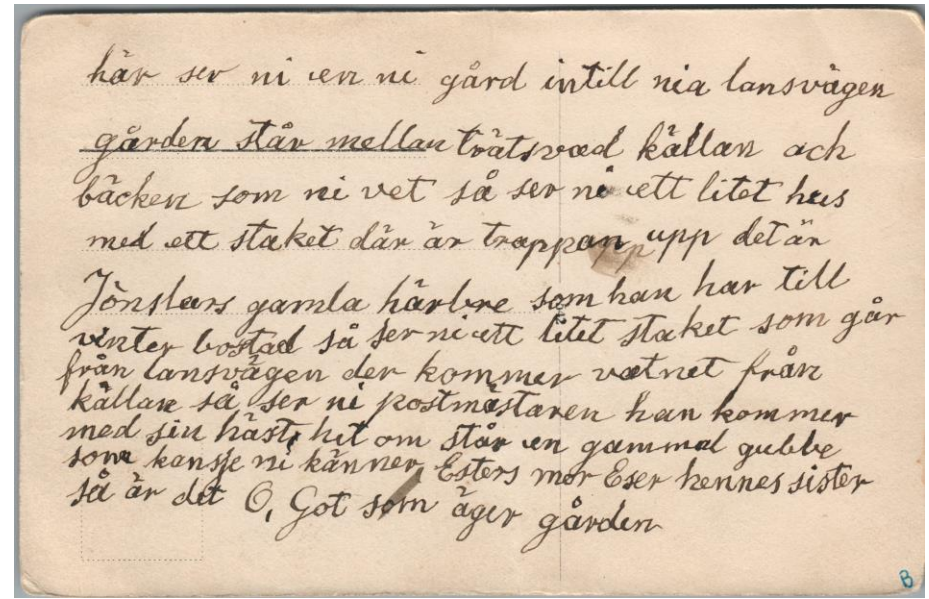 här ser ni en ni gård intill nia lansvägen
gården står mellan trätsvad källan och
bäcken som ni vet så ser ni ett litet hus
med ett staket där är trappan upp det är
Jönslars gamla härbre som han har till
vinter bostad så ser ni ett litet staket som går
från lansvägen der kommer vatnet från
källan så ser ni postmästaren han kommer
med sin häst, hit om står en gammal gubbe
som kansje ni känner, Esters mor Eser hennes sister
så är det O, Got som äger gården
B